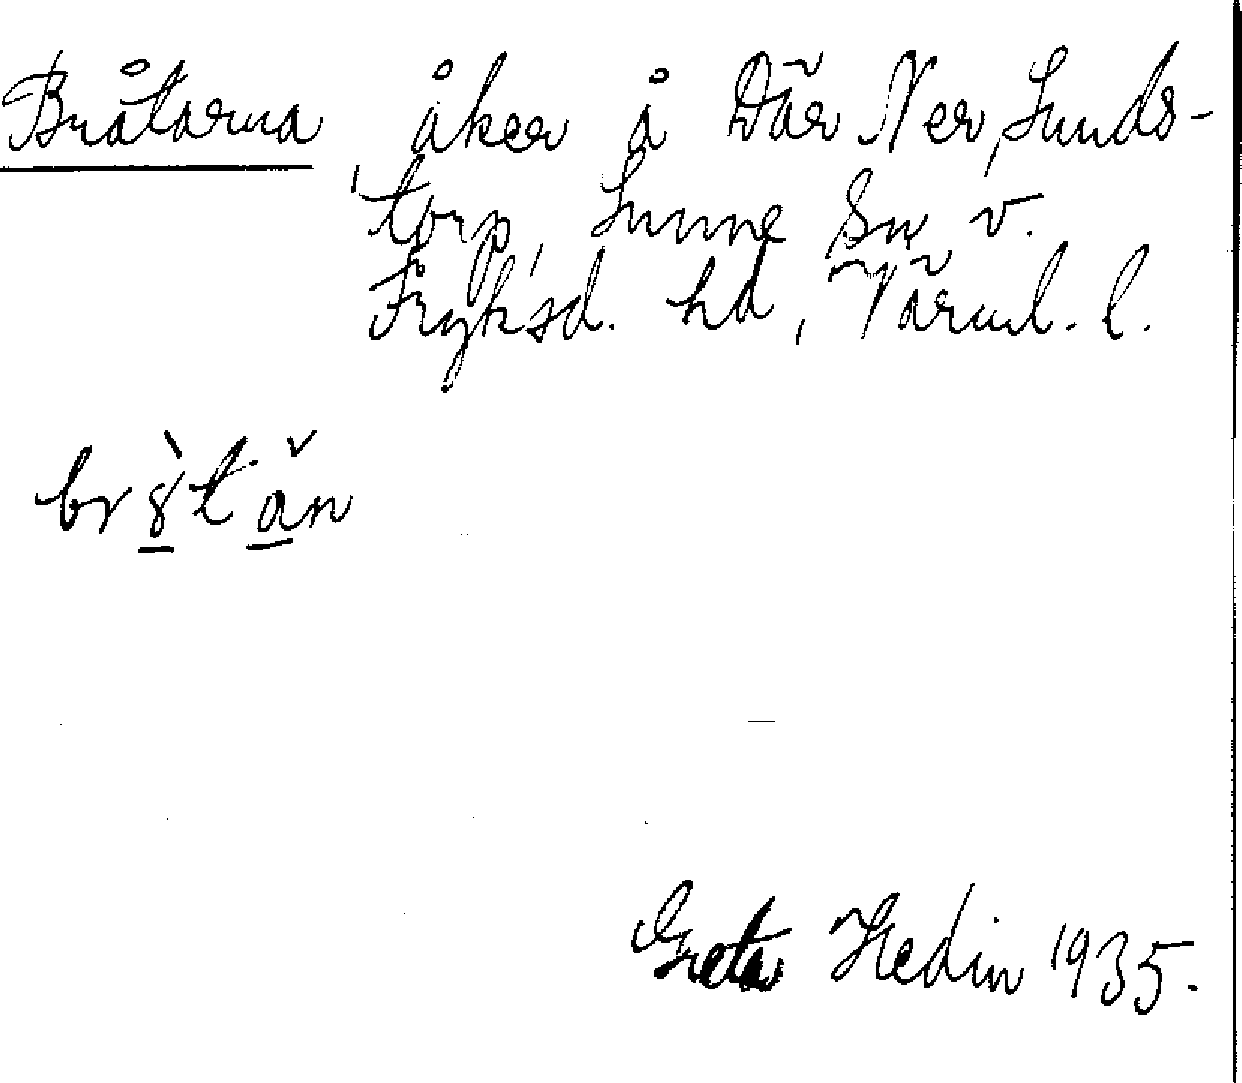 Bråtarna, åker å Där Ner, Sunds-
torp, Sunne Sn v.
Fryksd. hd, Värml. l.
br8̀tăn
Greta Hedin 1935.